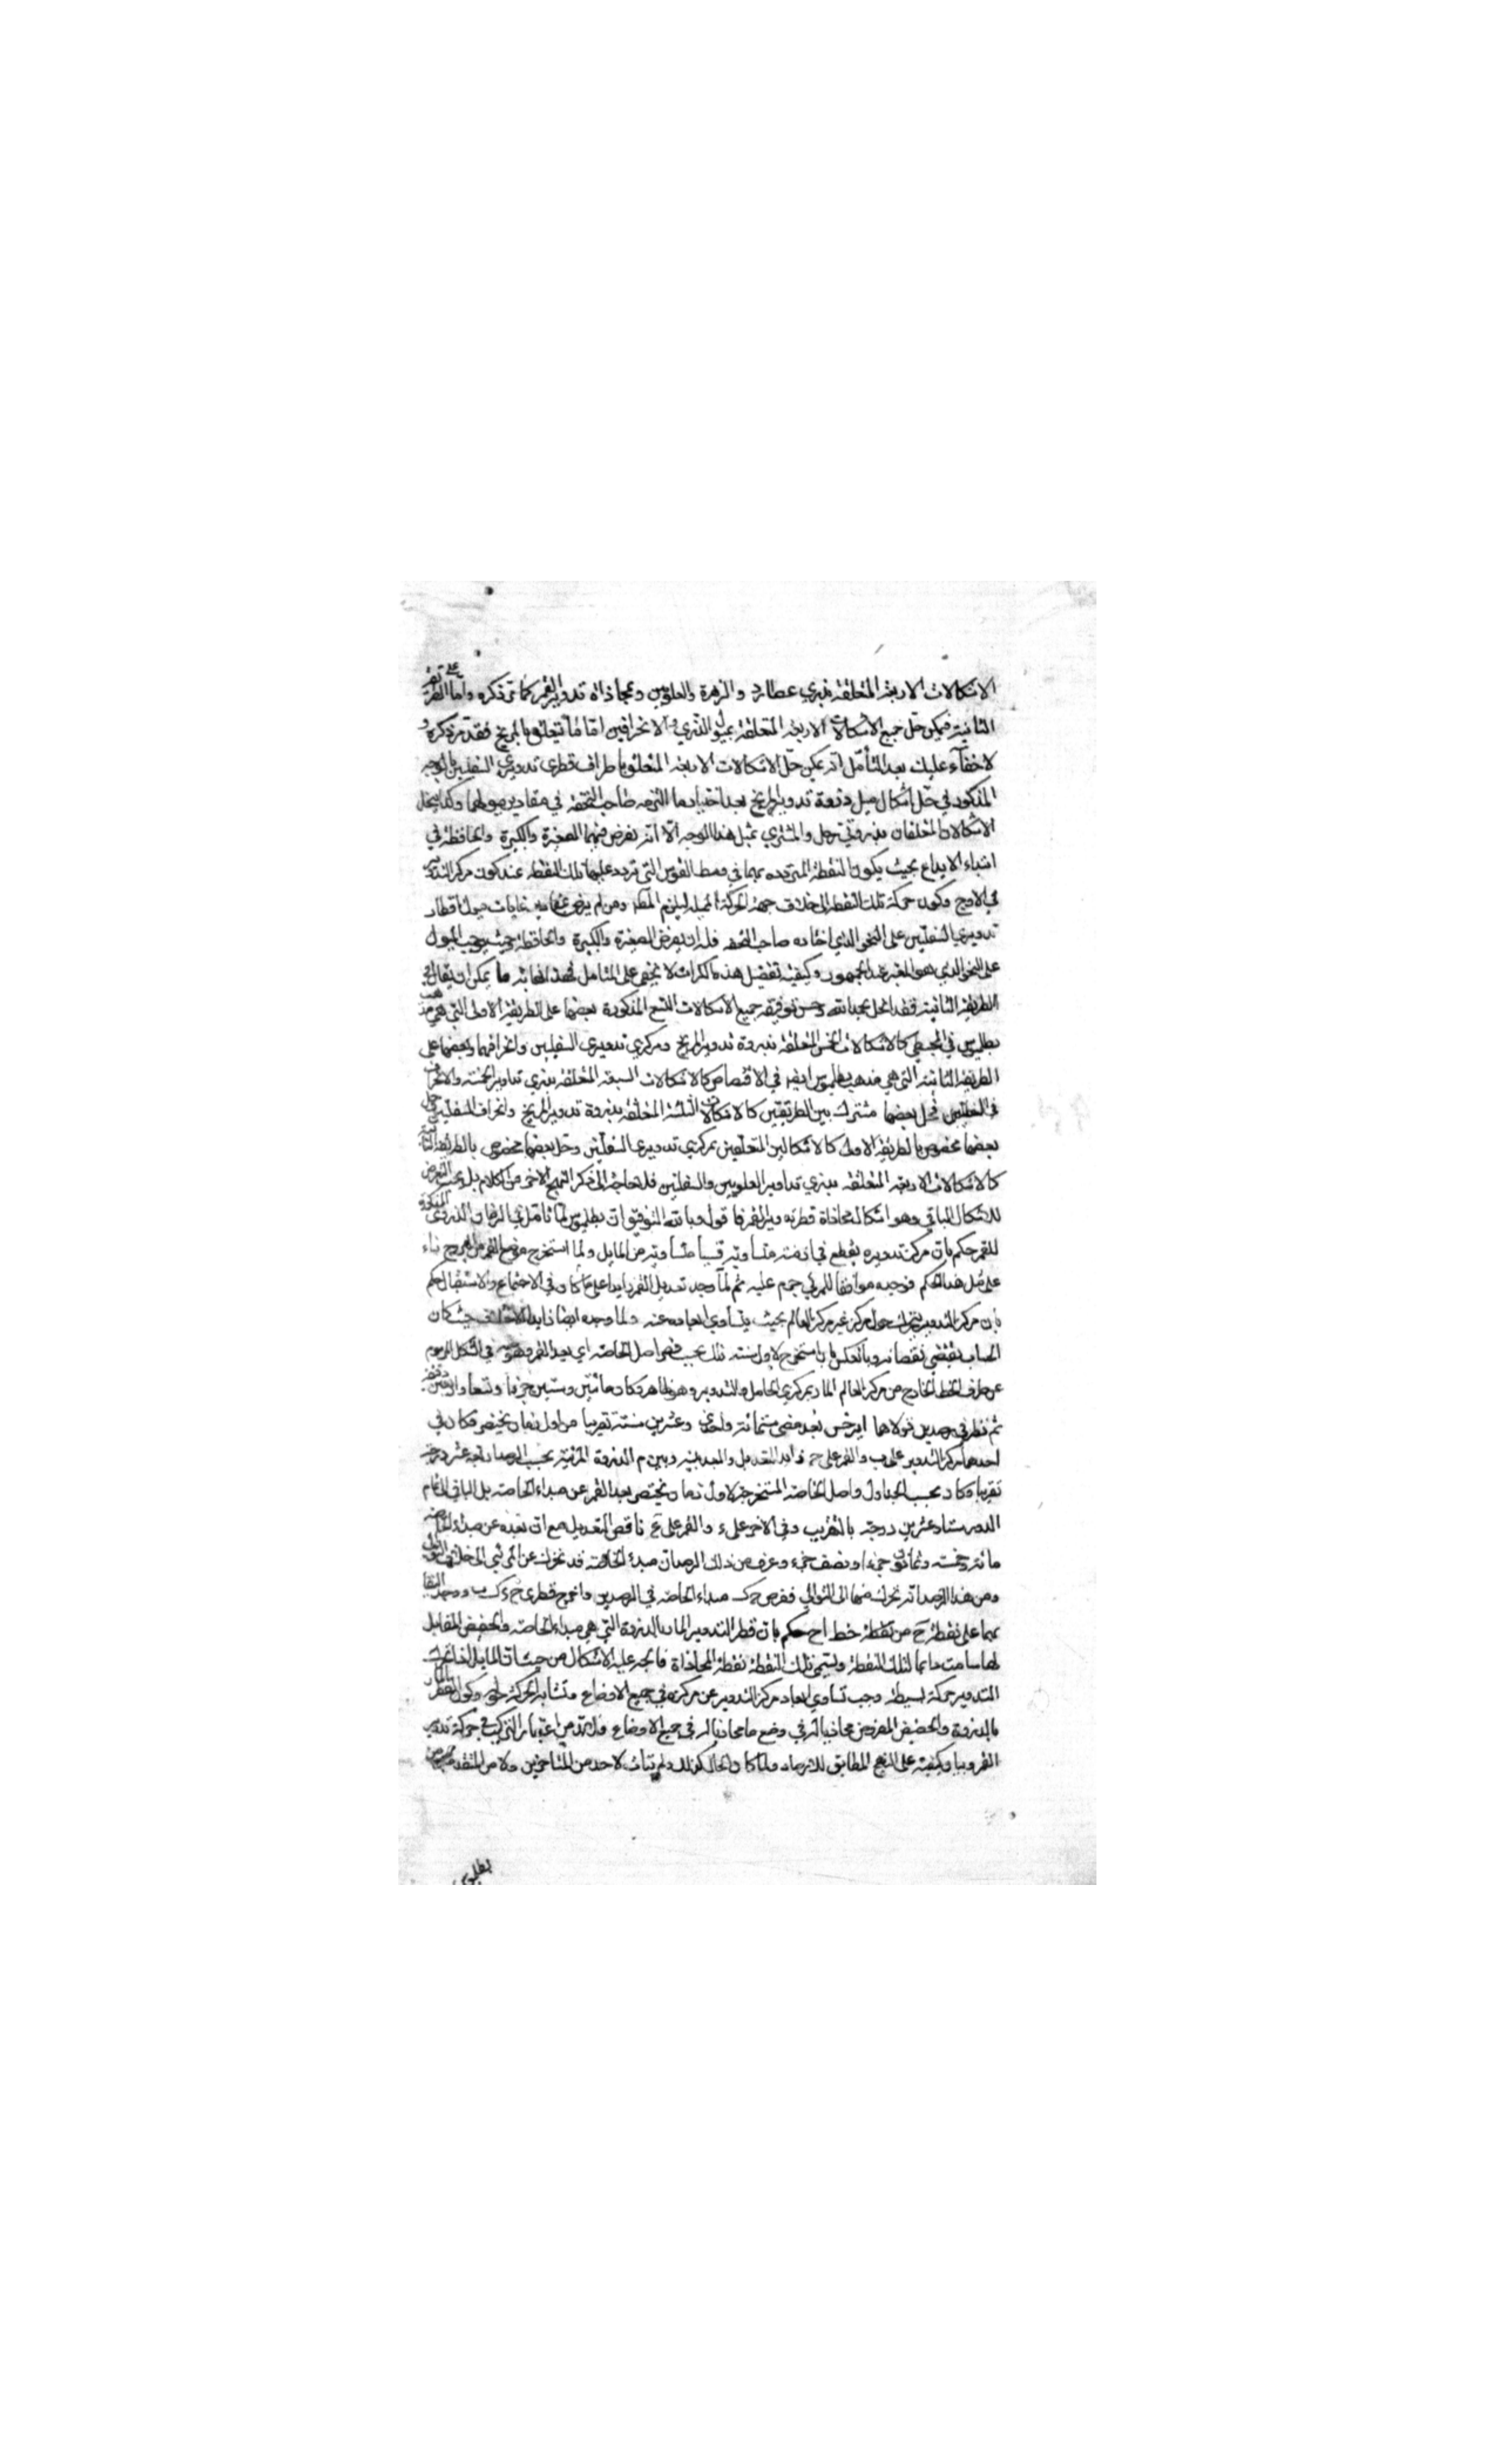 الاشكالات الاربعة المتعلقة بذري عطارد والزهرة والعلويين ومحاذاة تدوير القمر كما مر ذكره واما على
الثانية فيمكن حل جميع الاشكالات الاربعة المتعلقة بميول الذري والانحرافين اما ما يتعلق بالمريخ فقد مر ذكره و
لا خفاء عليك بعد التأمل انه يمكن حل الاشكالات الاربعة المتعلقة باطراف قطري تدويري السفليين بالوجه
المذكور في حل اشكال ميل ذروة تدوير المريخ بعد اختيار ما التزمه صاحب التحفة في مقادير ميولها وكذا ينحل
الاشكالان المتعلقان بذروتي زحل والمشتري بمثل هذا الوجه الا انه يفرض فيهما الصغيرة والكبيرة والحافظة في
ابتداء الابداع بحيث يكون النقطة المتوحده بهما في وسط القوس التي تردد عليها تلك النقطة عند كون مركز التدوير
في الاوج ويكون حركة تلك النقطة الى خلاف جهة الحركة ومن لم يرض غايات ميول اقطار
تدويري السفليين على النحو الذي اختاره صاحب التحفة فله ان يفرض الصغيرة والكبيرة والحافظة بحيث يوجب الميول
على النحو الذي هو المعتبر عند الجمهور وكيفية تفصيل هذه الكرات لا يخفى على المتأمل فهذا غاية ما يمكن ان يقال في
الطريقة الثانية فقد انحل بحمد الله وحسن توفيقه جميع الاشكالات التسع المذكورة بعضها على الطريقة الاولى التي هي مذهب
بطلميوس في المجسطي كالاشكالات الخمس المتعلقة بذروة تدوير المريخ ومركزي تدويري السفليين وانحرافهما وبعضها على
الطريقة الثانية التي هي مذهب بطلميوس ايضا في الاقتصاص كالاشكالات السبعة المتعلقة بذري تداوير الخمسة والانحراف
في السفليين فحل بعضها مشترك بين الطريقتين كالاشكالات الثلثة المتعلقة بذروة تدوير المريخ وانحراف السفليين وحل
بعضها مخصوص بالطريقة الاولى كالاشكالين المتعلقين بمركزي تدويري السفليين وحل بعضها مخصوص بالطريقة الثانية
كالاشكالات الاربعة المتعلقة بذري تداوير العلويين والسفليين فلا حاجة الى ذكر النهج الاخر من الكلام بل يجب التعرض
للاشكال الباقي وهو اشكال محاذاة قطر تدوير القمر فاقول وبالله التوفيق ان بطلميوس لما تأمل في الزمان الدوري المذكور
للقمر حكم بان مركز تدويره يقطع في ازمنة متساوية قسيا متساوية من المايل ولما استخرج موضع القمر من البروج بناء
على مثل هذا الحكم فوجده موافقا للمرئي جزم عليه ثم لما وجد تعديل القمر زايدا على ما كان في الاجتماع والاستقبال حكم
بان مركز التدوير يتحرك حول مركز غير مركز العالم بحيث يتساوي ابعاده عنه ولما وجده ايضا زايد الاختلاف حيث كان
الحساب يقتضي نقصانه وبالعكس بان استخرج لاول سنة ذلك بحسب اصل الخاصة اي بعد القمر في الشكل المرسوم
عن طرف الخط الخارج من مركز العالم المار بمركزي الحامل والتدوير وهو ظاهر وكان مائتين وستين جزءا وتسعا واربعين دقيقة
ثم نظر في رصدين تولاهما ابرخس بعد مضي ستمائة واحدى وعشرين سنة تقريبا من اول زمان بختنصر فكان في
احدهما مركز التدوير على ب والقمر على ح زايد التعديل والبعد بينه وبين م الذروة المرئية بحسب الرصد عشر درجة
تقريبا وكان بحسب الجداول واصل الخاصة المستخرجة لاول زمان بختنصر بعد القمر عن مبداء الخاصة بل الباقي الى تمام
الدور ستا وعشرين درجة بالتقريب وفي الاخر على ء والقمر على ع ناقص التعديل مع ان بعده عن مبداء الخاصة
مائة وخمسة وثمانون جزءا ونصف جزء وعرف من ذلك الرصد ان مبدء الخاصة قد تحرك عن المرئي الى خلاف التوالي
ومن هذا الرصد انه تحرك منها الى التوالي ففرض مبداء الخاصة في الرصدين واخرج قطري
بهما على نقطة ح من نقطة خط اح حكم بان قطر التدوير المار بالذروة التي هي مبداء الخاصة والحضيض المقابل
لها سامت دايما لتلك النقطة وتسمى تلك النقطة نقطة المحاذاة فاتجه عليه الاشكال من حيث ان المايل اذا حرك
التدوير حركة بسيطة وجب تساوي ابعاد مركز التدوير عن مركزه في جميع الاوضاع وتشابه الحركة حوله وكون القطر المار
بالذروة والحضيض المفروض محاذيا له في وضع ما محاذيا له في جميع الاوضاع فلا بد من اعتبار التركيب في حركة تدوير
القمر وبيان كيفيته على النهج المطابق للارصاد ولما كان الحال كذلك ولم يتأت لاحد من المتأخرين ولا من المتقدمين
بطلميوس